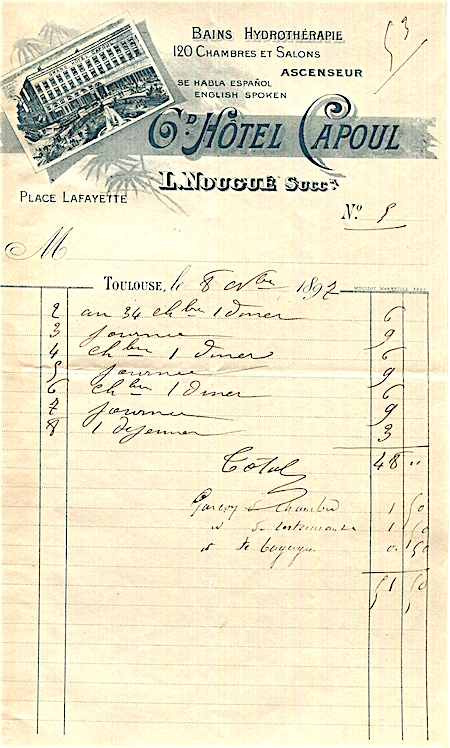 53
BAINS HYDROTHÉRAPIE
120 CHAMBRES ET SALONS
ASCENSEUR
SE HABLA ESPAÑOL
ENGLISH SPOKEN
GD HÔTEL CAPOUL
L. NOUGUÉ SUCCR
PLACE LAFAYETTE
No 5
M
TOULOUSE, le 8 189
MOULLOT MARSEILLE
2 au 34 chbre 1 diner 6
3 journée 9
4 chbre 1 diner 6
5 journée 9
6 chbre 1 diner 6
7 journée 9
8 1 dejeuner 3
Total 48 "
Garçon de chambre 1 50
id de restaurant 1 50
id de bagages 50
51 50